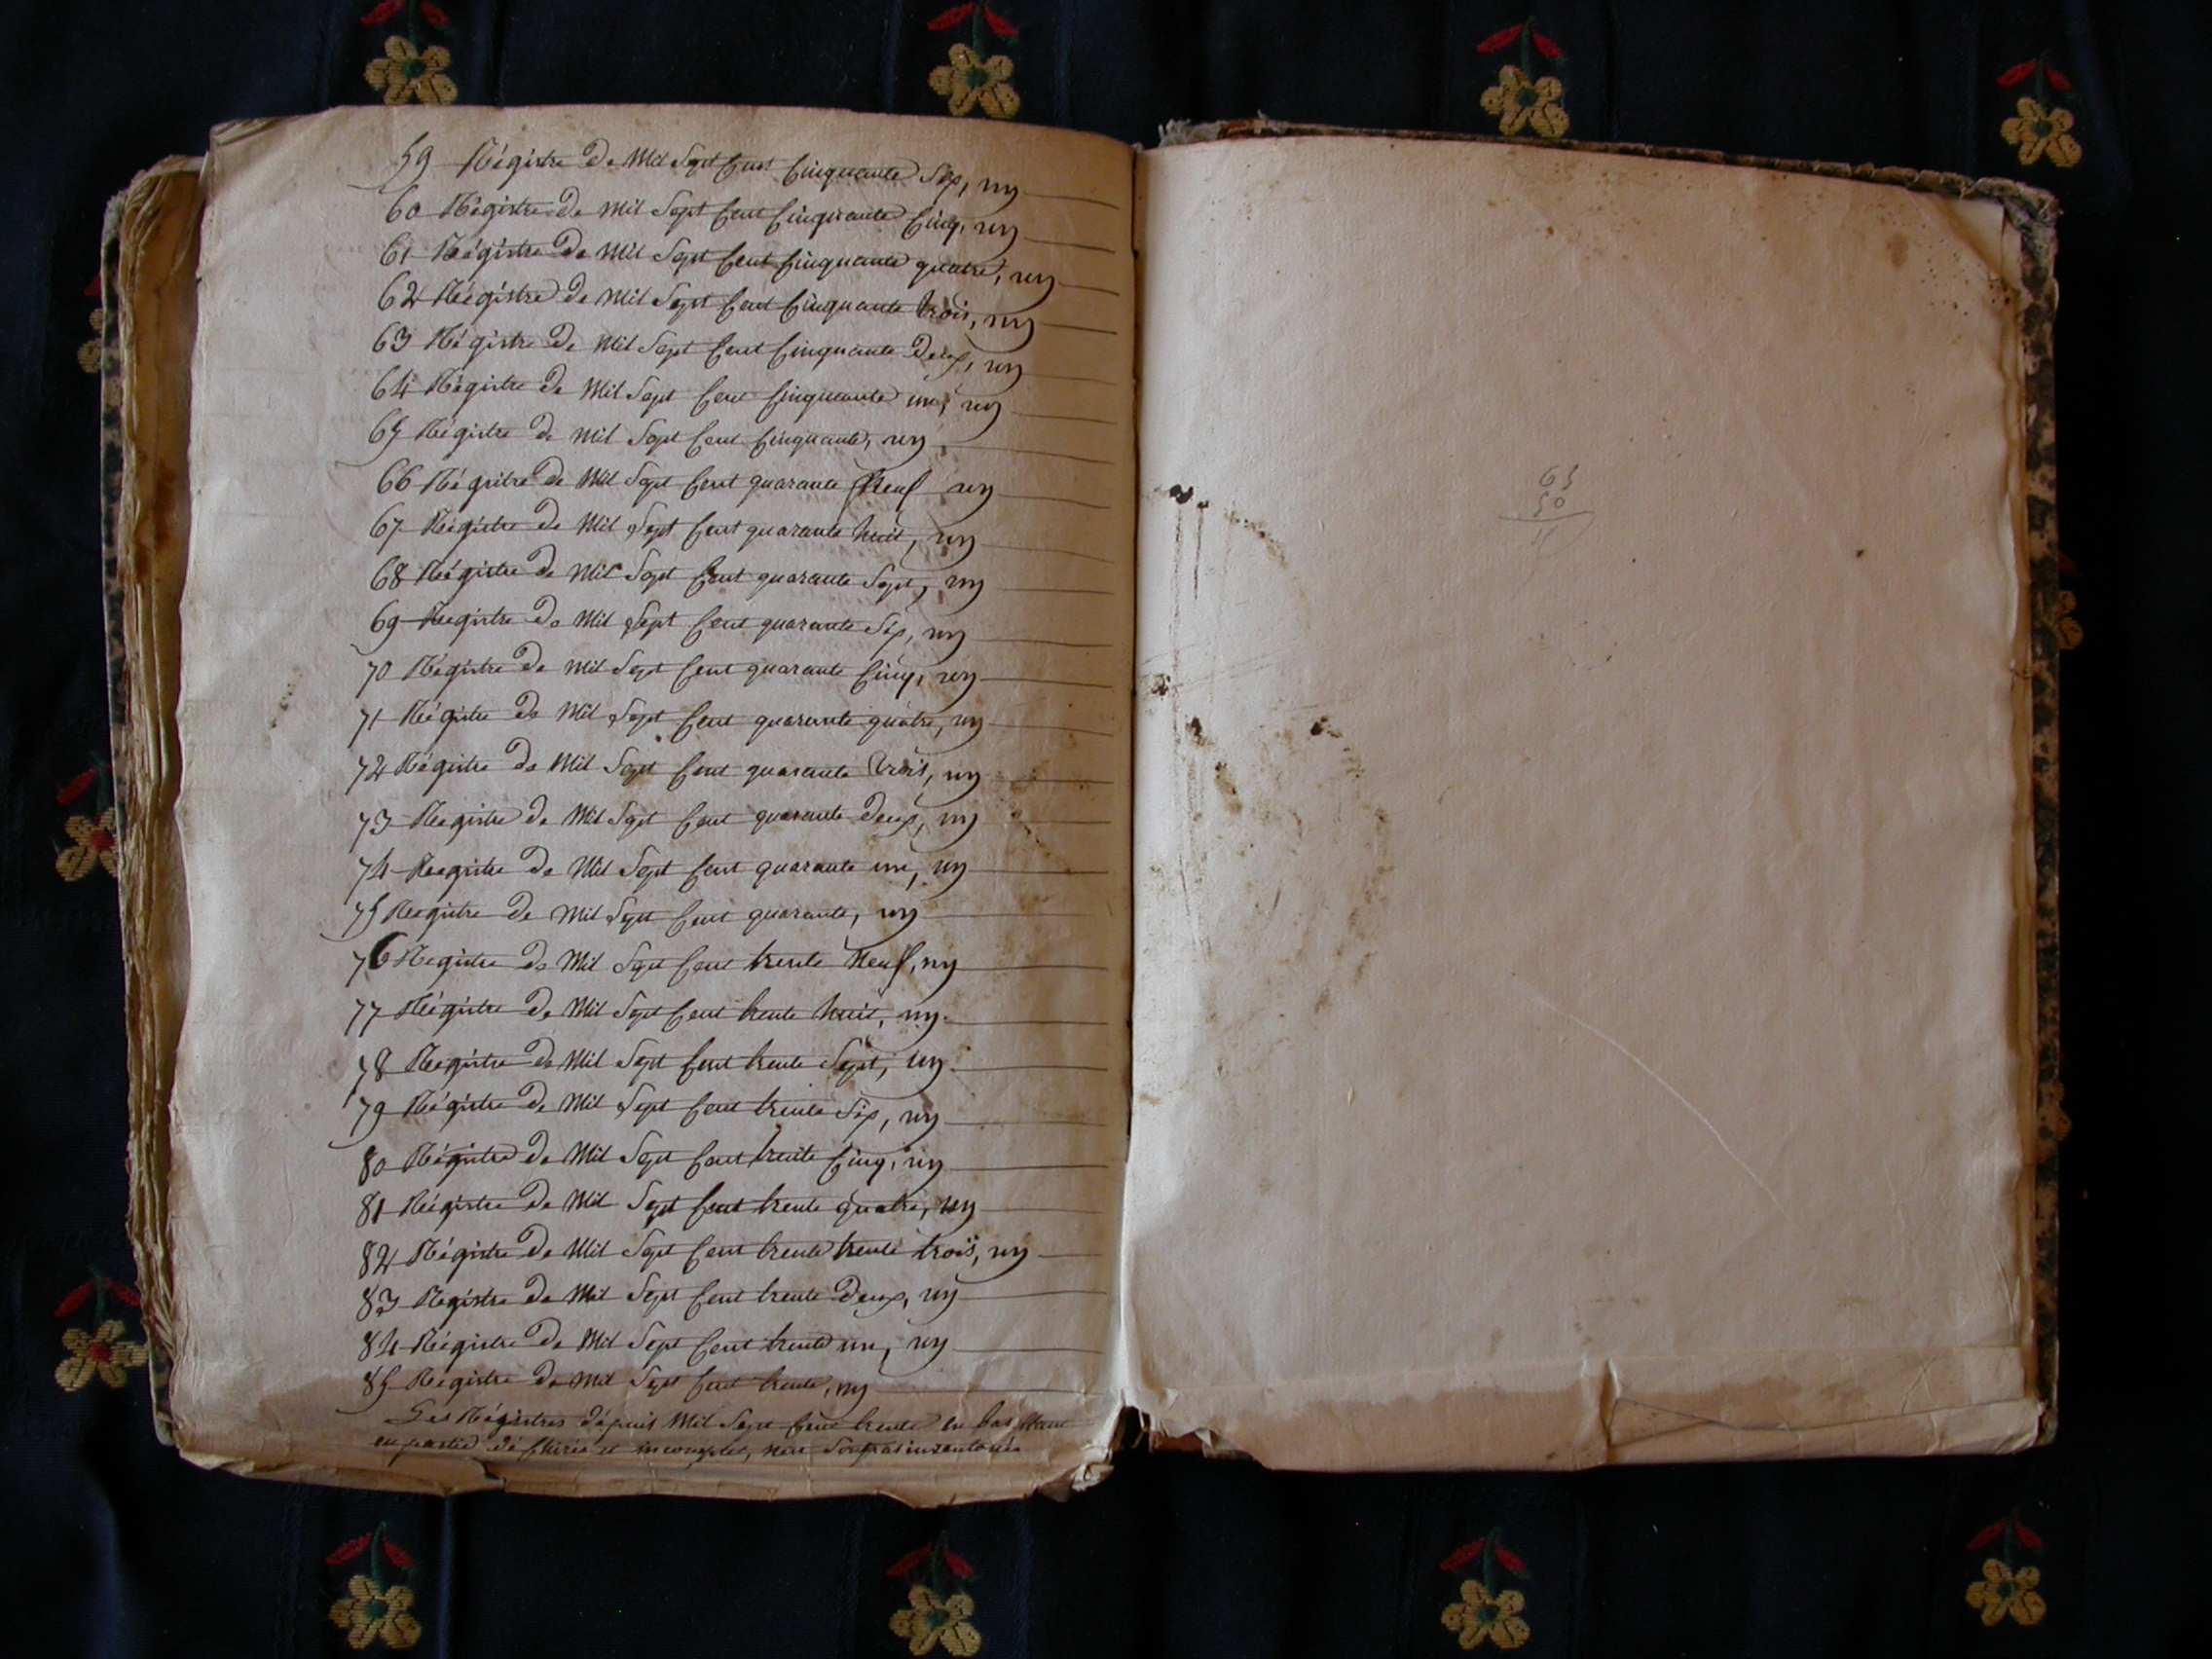 59 Régistre De Mil Sept Cent Cinquante Six, un
60 Régistre De Mil Sept Cent Cinquante Cinq, un
61 Régistre De Mil Sept Cent Cinquante quatre, un
62 Régistre De Mil Sept Cent Cinquante trois, un
63 Régistre De Mil Sept Cent Cinquante Deux, un
64 Régistre De Mil Sept Cent Cinquante un, un
65 Régistre De Mil Sept Cent Cinquante, un
66 Régistre De Mil Sept Cent quarante Neuf un
67 Régistre De Mil Sept Cent quarante huit, un
68 Régistre De Mil Sept Cent quarante Sept, un
69 Régistre De Mil Sept Cent quarante Six, un
70 Régistre De Mil Sept Cent quarante Cinq, un
71 Régistre De Mil Sept Cent quarante quatre, un
72 Régistre De Mil Sept Cent quarante trois, un
73 Régistre De Mil Sept Cent quarante Deux, un
74 Régistre De Mil Sept Cent quarante un, un
75 Régistre De Mil Sept Cent quarante, un
76 Régistre De Mil Sept Cent trente Neuf, un
77 Régistre De Mil Sept Cent trente huit, un
78 Régistre De Mil Sept Cent trente Sept, un
79 Régistre De Mil Sept Cent trente Six, un
80 Régistre De Mil Sept Cent trente Cinq, un
81 Régistre De Mil Sept Cent trente quatre, un
82 Régistre De Mil Sept Cent trente trente trois, un
83 Régistre De Mil Sept Cent trente Deux, un
84 Régistre De Mil Sept Cent trente un, un
85 Régistre De Mil Sept Cent trente, un
Les Régistres dépuis Mil Sept Cent trente en bas étant
en partie déchirés et incomplet, non Sont pas inventoriés
65
50